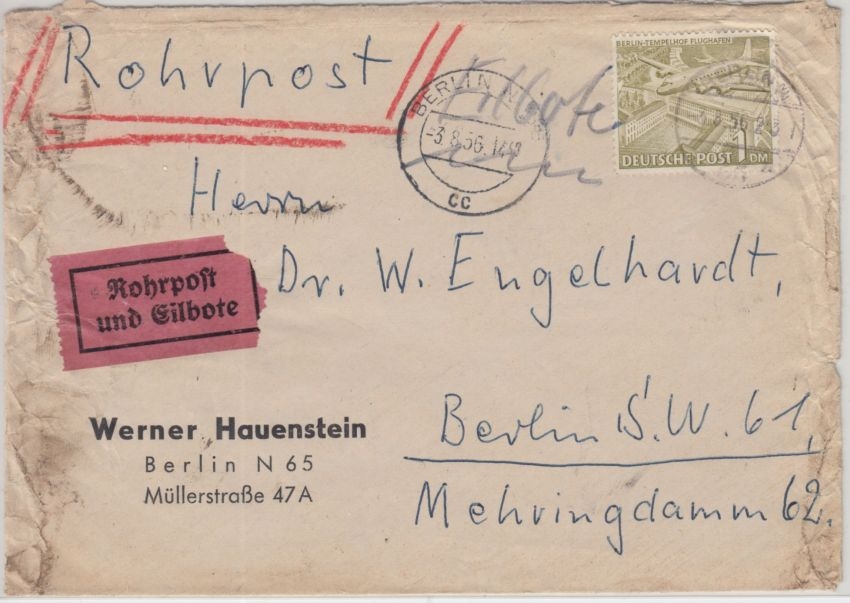 Rohrpost
Eilbote
BERLIN-TEMPELHOF FLUGHAFEN
DEUTSCHE POST 1 DM
BERLIN
-3.8.56.
cc
Herrn
Dr. W. Engelhardt,
Rohrpost
und Eilbote
Werner Hauenstein
Berlin N 65
Müllerstraße 47A
Berlin S.W. 61,
Mehringdamm 62.